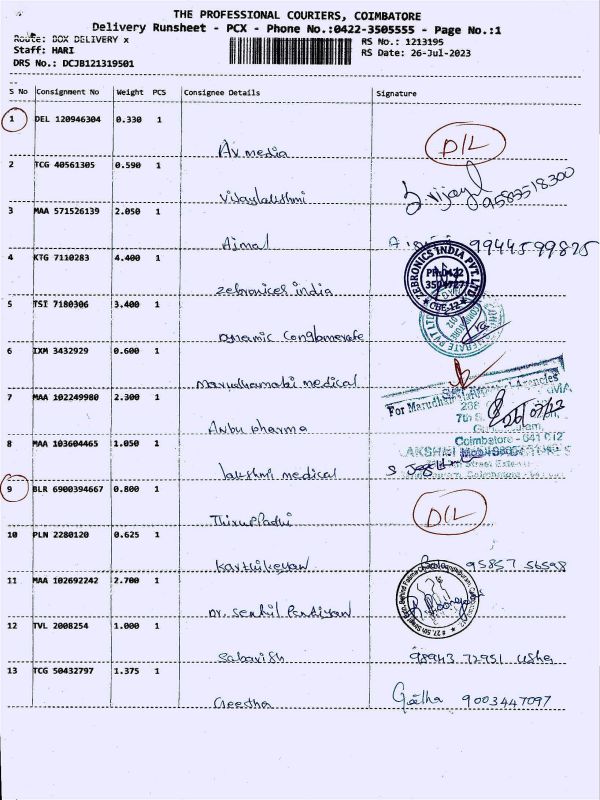 THE PROFESSIONAL COURIERS, COIMBATORE
Delivery Runsheet - PCX - Phone No.:0422-3505555 - Page No.:1
Route: BOX DELIVERY x RS No.: 1213195
Staff: HARI RS Date: 26-Jul-2023
DRS No.: DCJB121319501
S No Consignment No Weight PCS Consignee Details Signature
1 DEL 120946304 0.330 1
Av media D/L
2 TCG 40561305 0.590 1
Vijayalakshmi 9585518300
3 MAA 571526139 2.050 1
Ajmal 9944599825
4 KTG 7110283 4.400 1
Zebronices india ZEBRONICS INDIA PVT. LTD CBE-12
5 TSI 7180306 3.400 1
Dynamic Conglomerate
6 IXM 3432929 0.600 1
Marudhamalai medical
7 MAA 102249980 2.300 1 For
Anbu pharma
8 MAA 103604465 1.050 1 Coimbatore - 641 012
lakshmi medical
9 BLR 6900394667 0.800 1
Thiruppathi D/L
10 PLN 2280120 0.625 1
Karthikeyan 95857 56598
11 MAA 102692242 2.700 1
Dr. Senthil Pandiyan
12 TVL 2008254 1.000 1
Sabarish 98943 72951 Usha
13 TCG 50432797 1.375 1
Geetha Geetha 9003447097